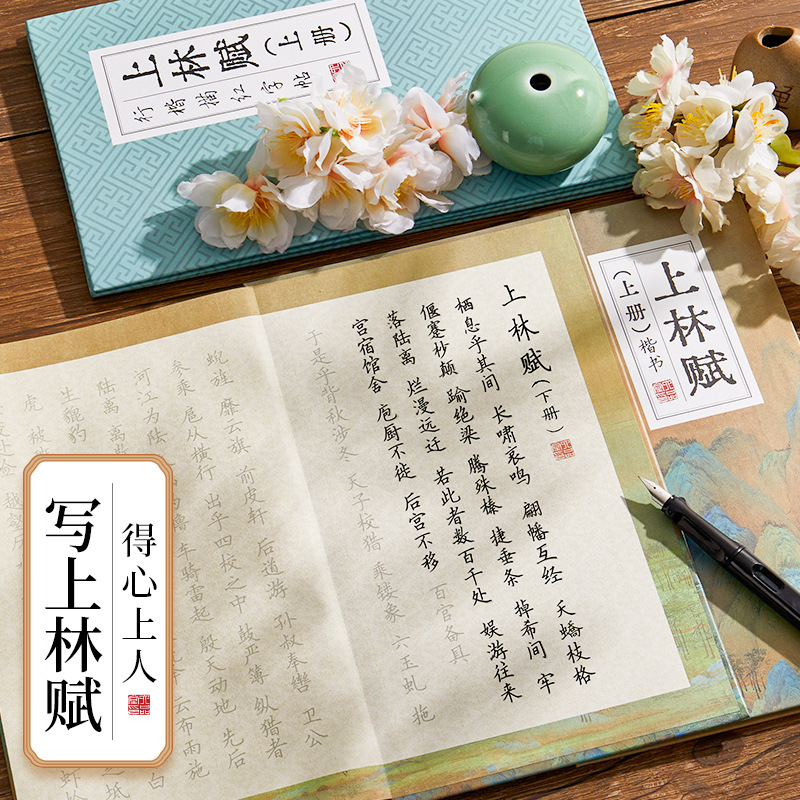 上林赋（上册）
行楷描红字帖
上林赋
（上册）楷书
上林赋（下册）
栖息乎其间 长啸哀鸣 翩幡互经 夭蟜枝格
偃蹇杪颠 踰绝梁 腾殊榛 捷垂条 掉希间 牢
落陆离 烂漫远迁 若此者数百千处 娱游往来
宫宿馆舍 庖厨不徙 后宫不移 百官备具
于是乎背秋涉冬 天子校猎 乘镂象 六玉虬 拖
蜺旌 靡云旗 前皮轩 后道游 孙叔奉辔 卫公
参乘 扈从横行 出乎四校之中 鼓严簿 纵猎者
河江为阹 橹 车骑雷起 殷天动地 先后
陆离 离 云布雨施
生貔豹 白
虎 被 之坻
得心上人
写上林赋